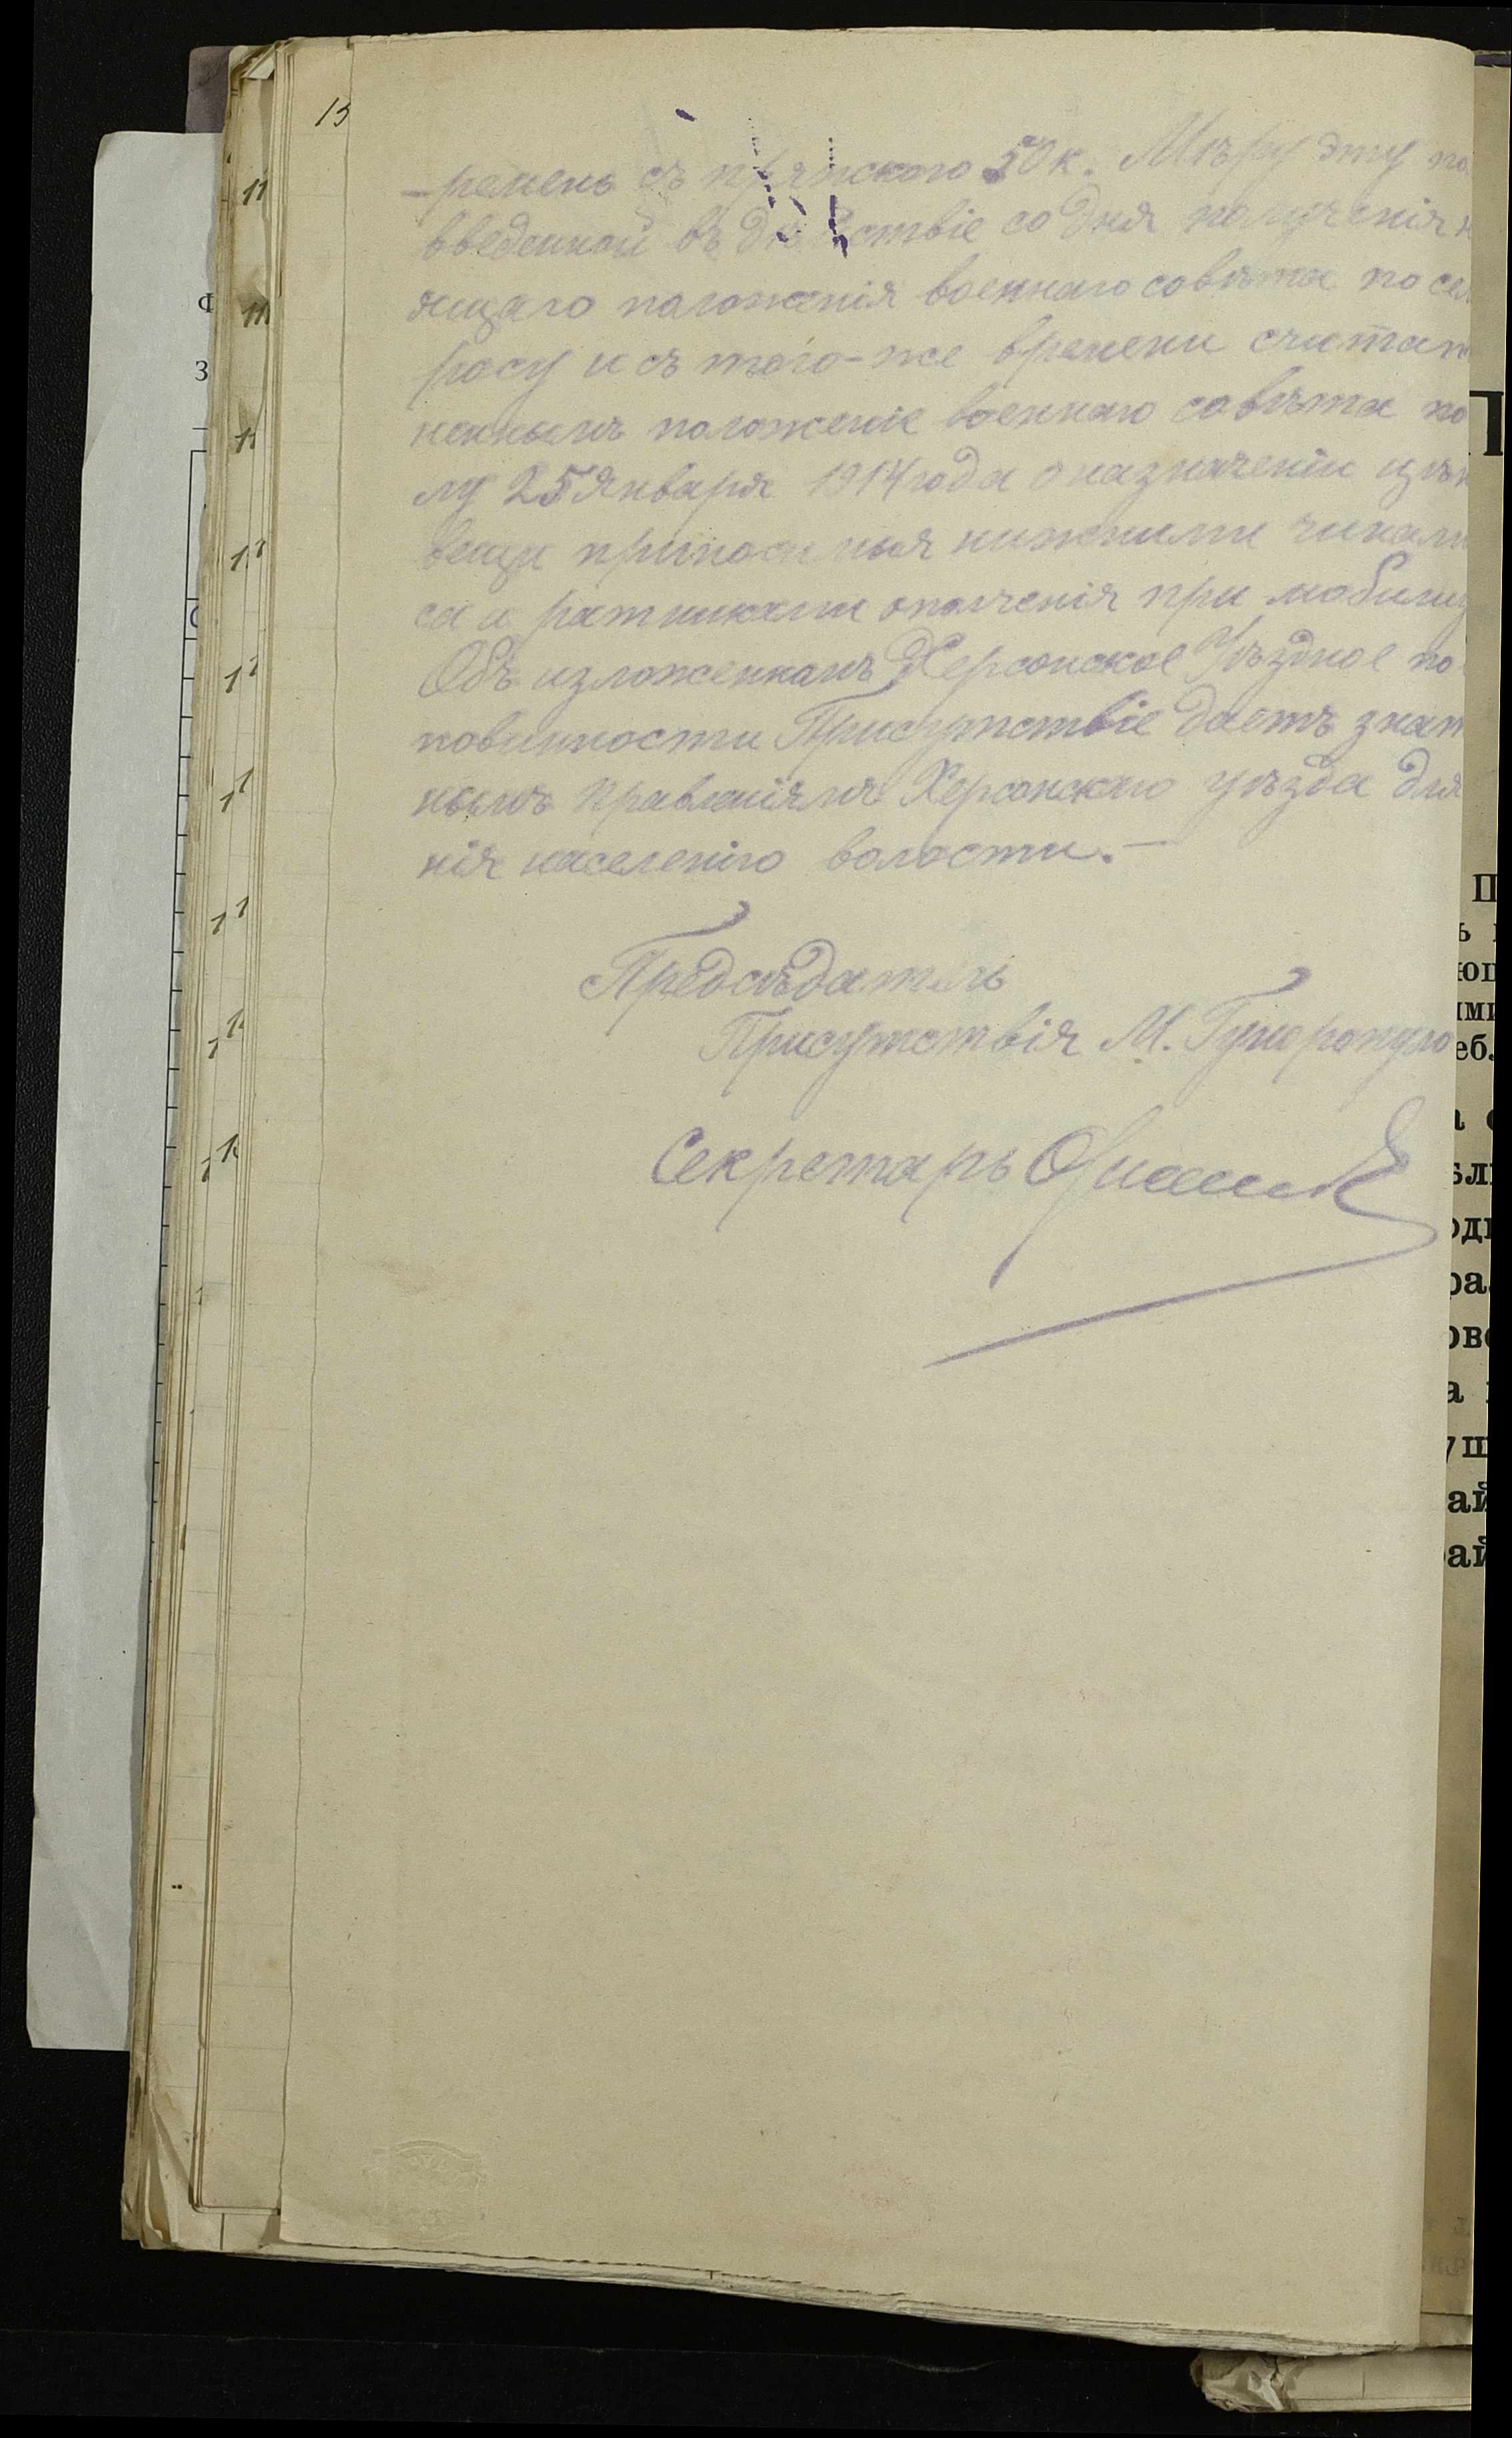 15
-ремень съ пряжкою 50 к. Мѣру эту по
введенной въ дѣйствіе со дня полученія н
ящаго положенія военнаго совѣта по сем
росу и съ того-же времени считат
неннымъ положеніе военнаго совѣта по
лу 25 Января 1914 года о назначеніи цѣн
вещи приносимыя нижними чинами
са и ратниками ополченія при мобилиз
Объ изложенномъ Херсонское Уѣздное по
повинности Присутствіе даетъ знат
нымъ правленіямъ Херсонскаго уѣзда для
нія населенію волости.-
Предсѣдатель
Присутствія М.
Секретарь